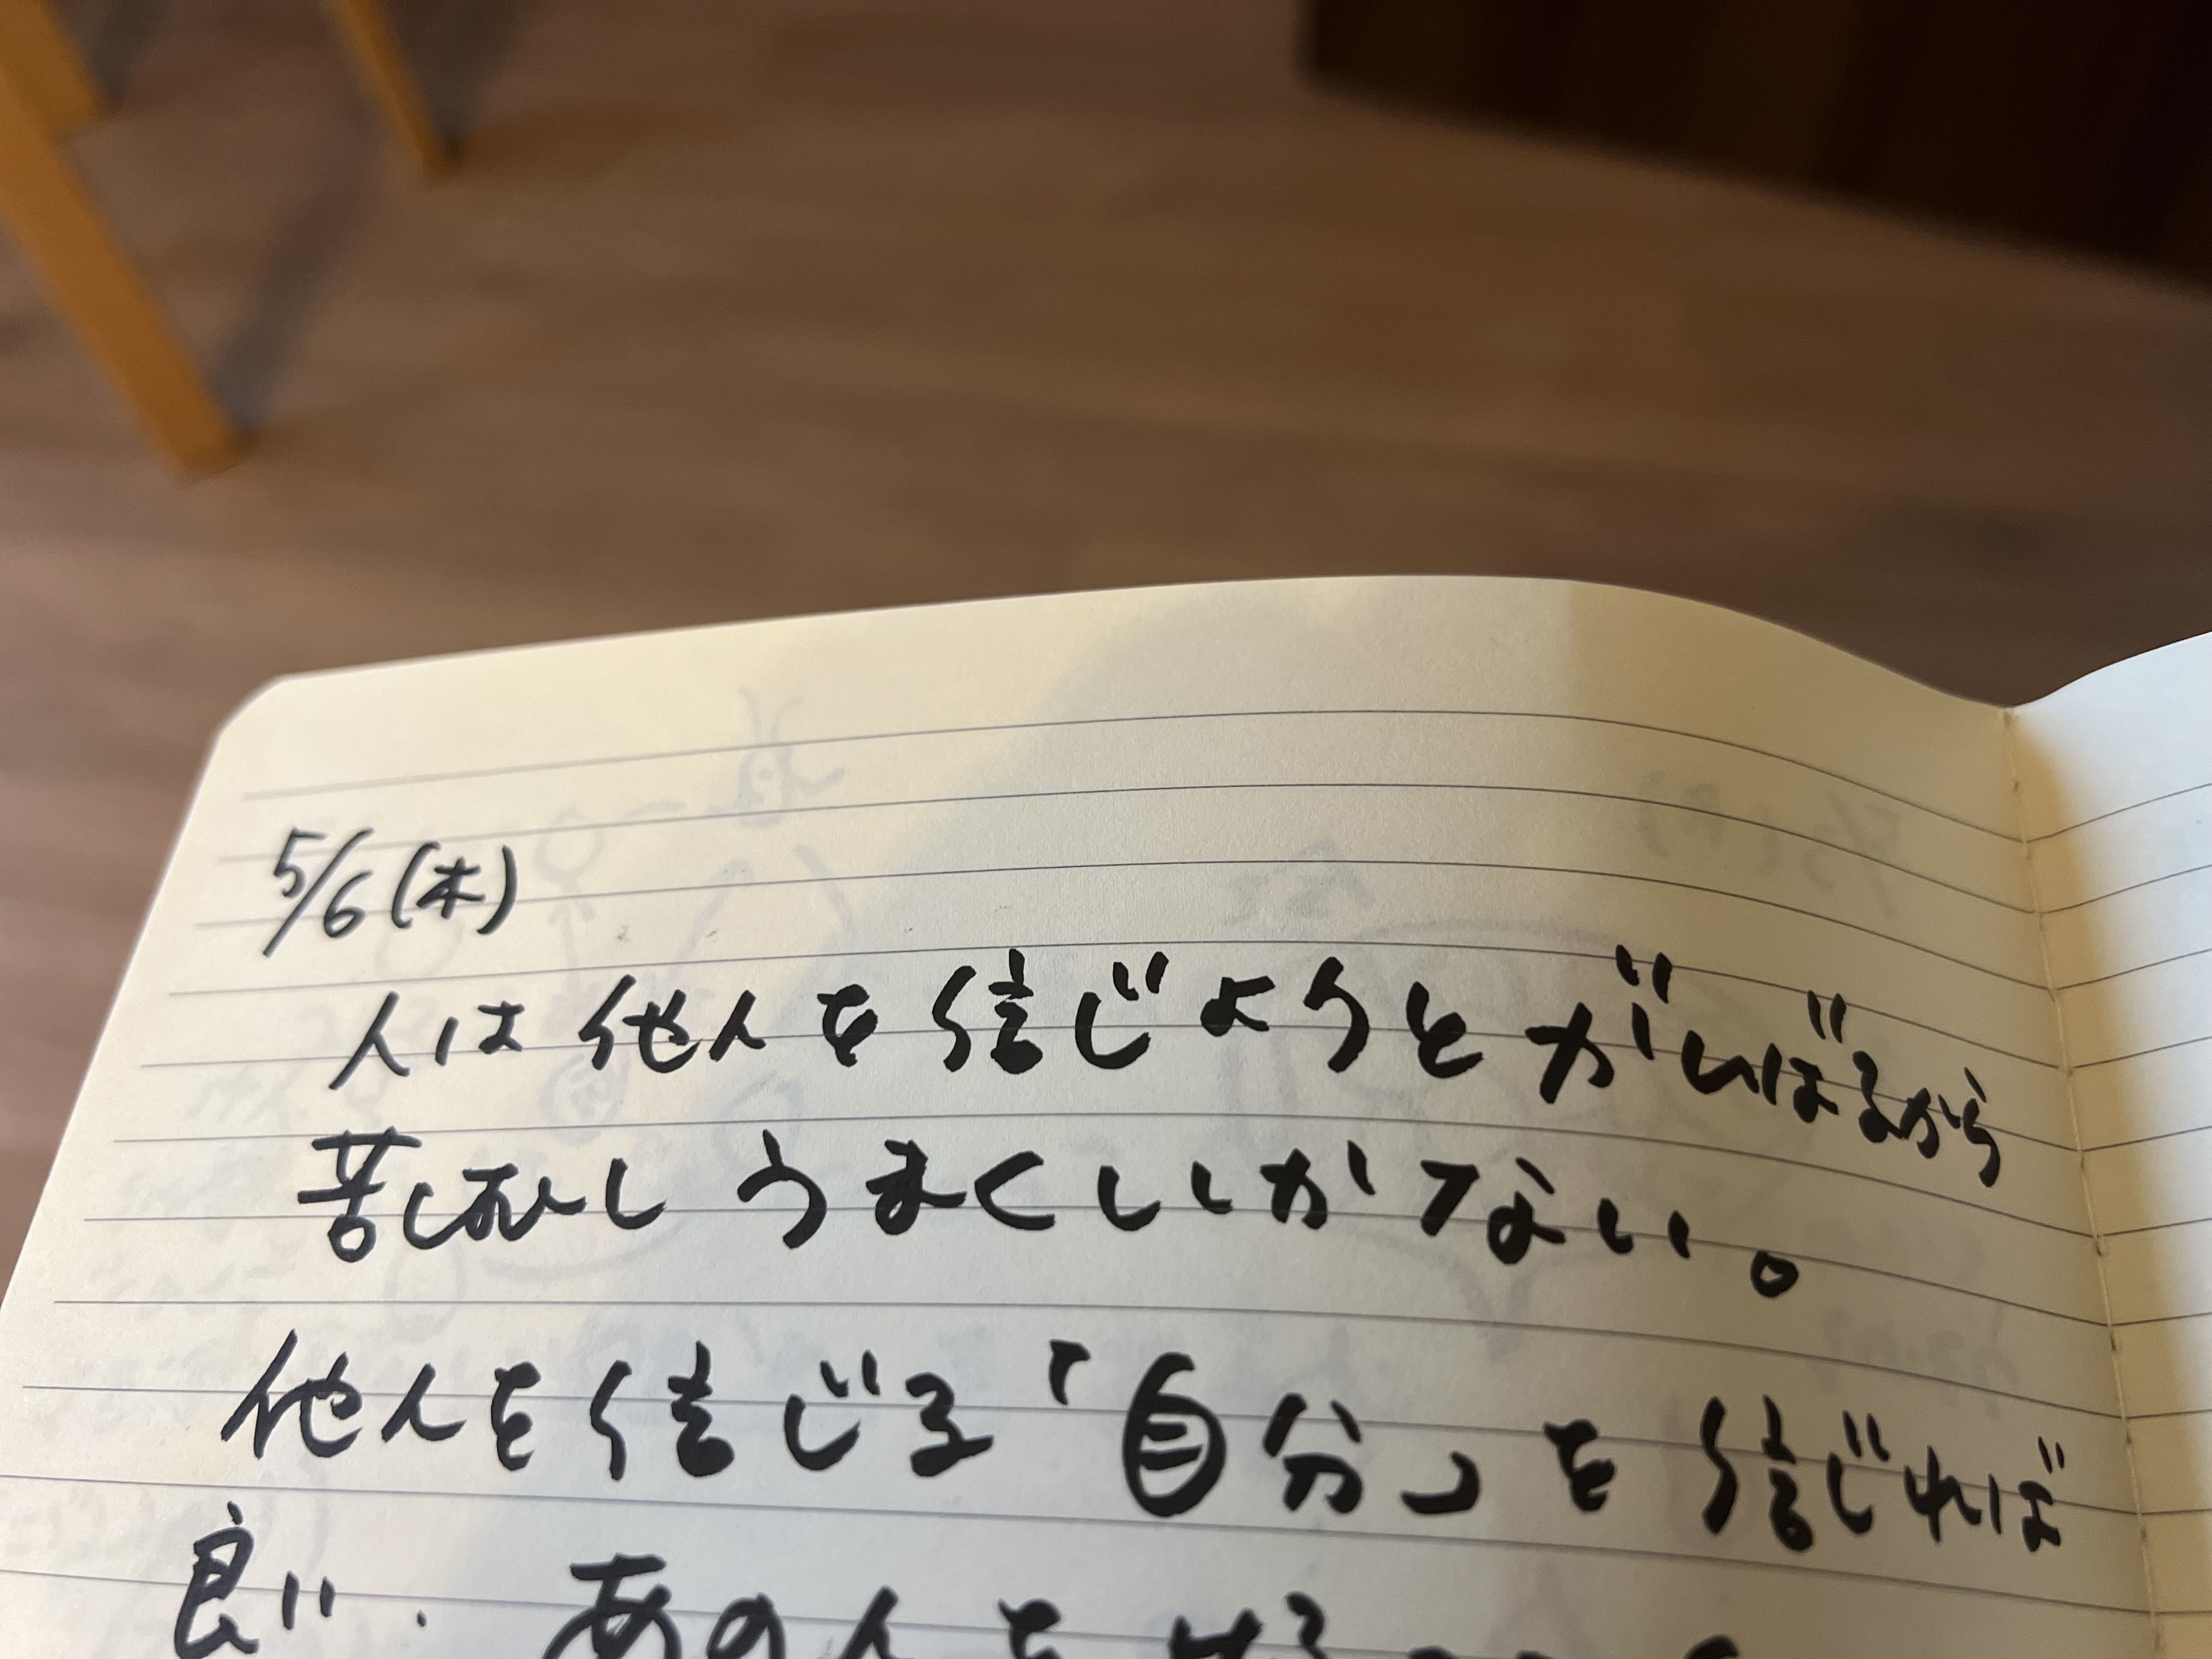 5/6(木)
人は他人を信じようとがんばるから
苦しむしうまくいかない。
他人を信じる「自分」を信じれば
良い.あの人を